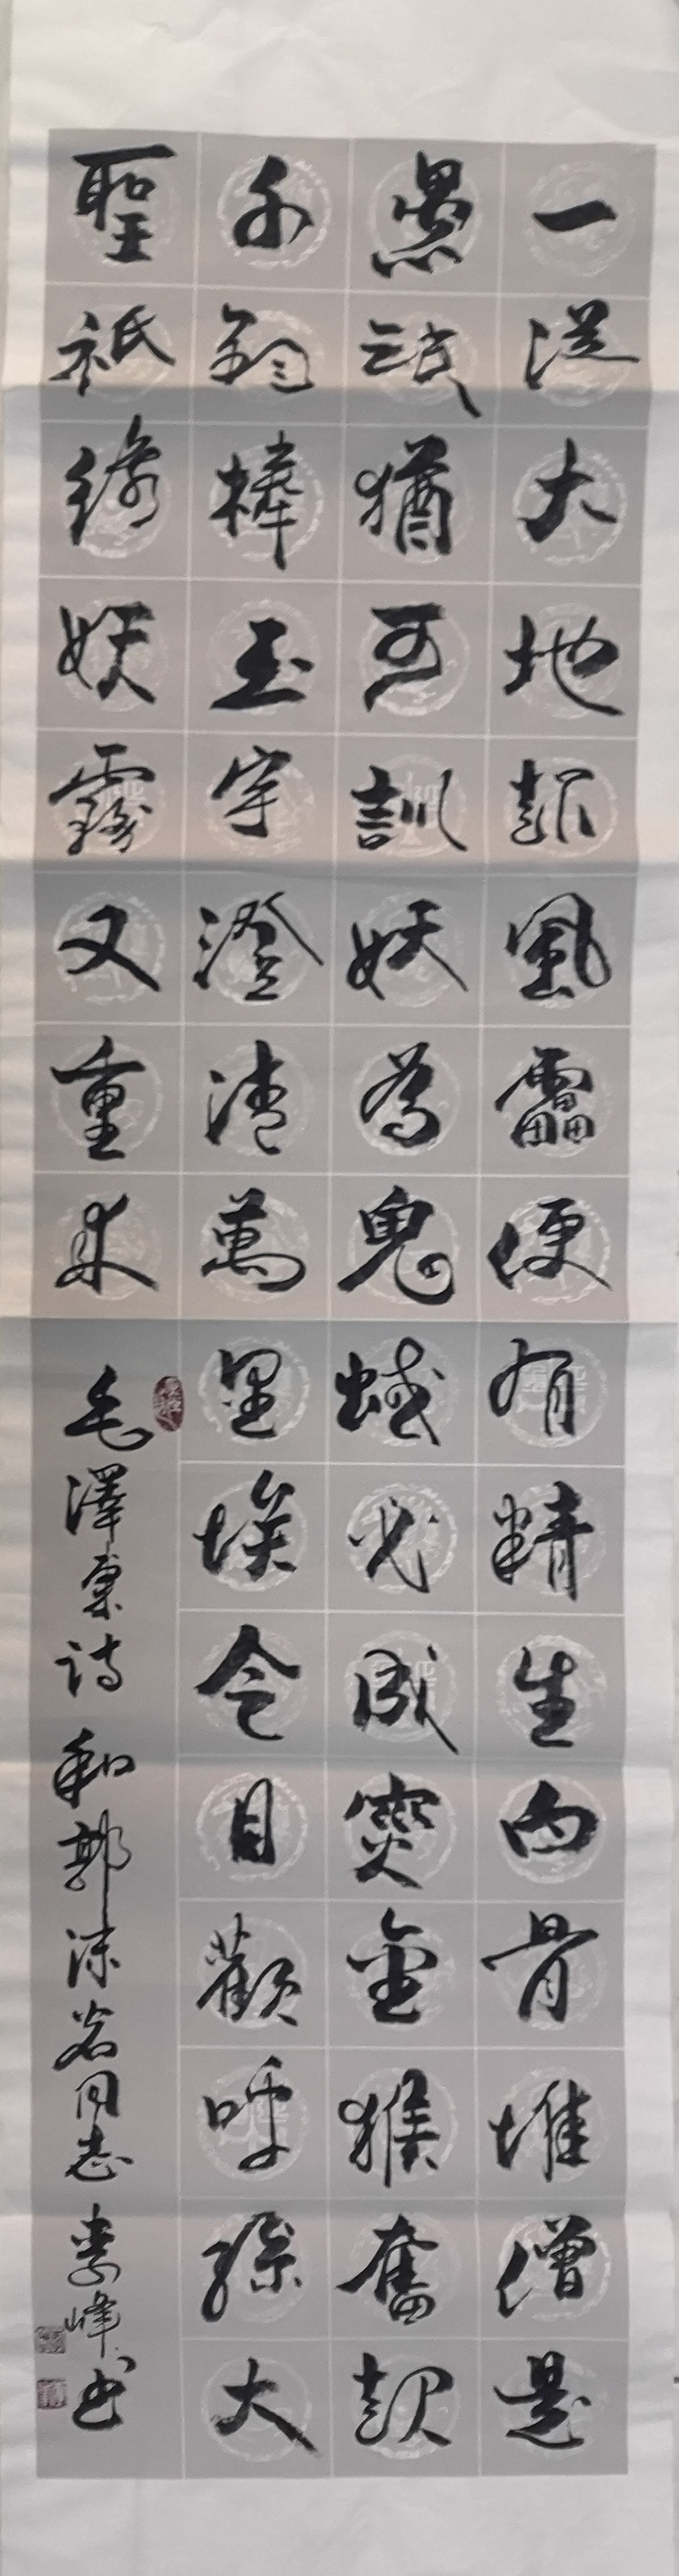 一從大地起風靁便有精生白骨堆僧是
愚氓猶可訓妖為鬼蜮必成災金猴奮起
千鈞棒玉宇澄清萬里埃今日歡呼孫大
聖祇緣妖霧又重來
毛澤東詩 和郭沫若同志 李峰书